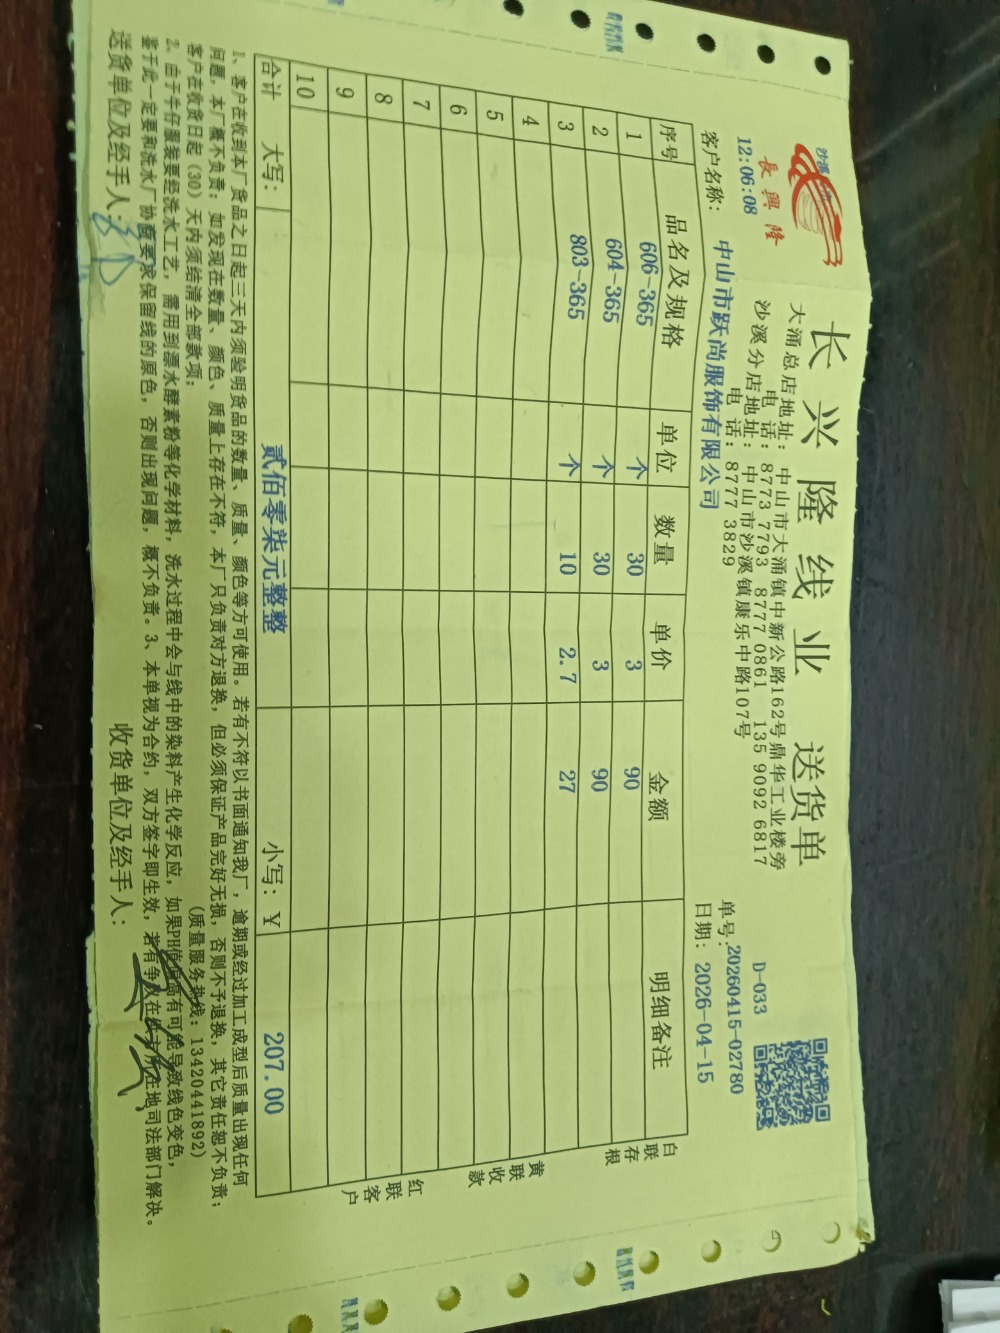 长兴隆线业 送货单
沙溪
長興隆
12:06:08
大涌总店地址: 中山市大涌镇中新公路162号鼎华工业楼旁
电 话: 8773 7793 8777 0861 135 9092 6817
沙溪分店地址: 中山市沙溪镇康乐中路107号
电 话: 8777 3829
D-033
单号:20260415-02780
客户名称: 中山市跃尚服饰有限公司
日期: 2026-04-15
序号 品名及规格 单位 数量 单价 金额 明细备注
1 606-365 个 30 3 90
2 604-365 个 30 3 90
3 803-365 个 10 2.7 27
4
5
6
7
8
9
10
合计 大写: 贰佰零柒元整整 小写: ¥ 207.00
白联存根
黄联收款
红联客户
1、客户在收到本厂货品之日起三天内须验明货品的数量、质量、颜色等方可使用。若有不符以书面通知我厂，逾期或经过加工成型后质量出现任何
问题，本厂概不负责；如发现在数量、颜色、质量上存在不符，本厂只负责对方退换，但必须保证产品完好无损，否则不予退换，其它责任恕不负责；
客户在收货日起（30）天内须结清全部款项； (质量服务热线: 13420441892)
2、由于牛仔服装要经洗水工艺，需用到漂水酵素粉等化学材料，洗水过程中会与线中的染料产生化学反应，如果PH值偏高有可能导致线色变色，
鉴于此一定要和洗水厂协商要求保留线的原色，否则出现问题，概不负责。3、本单视为合约，双方签字即生效，若有争议在供方所在地司法部门解决。
送货单位及经手人:
收货单位及经手人: